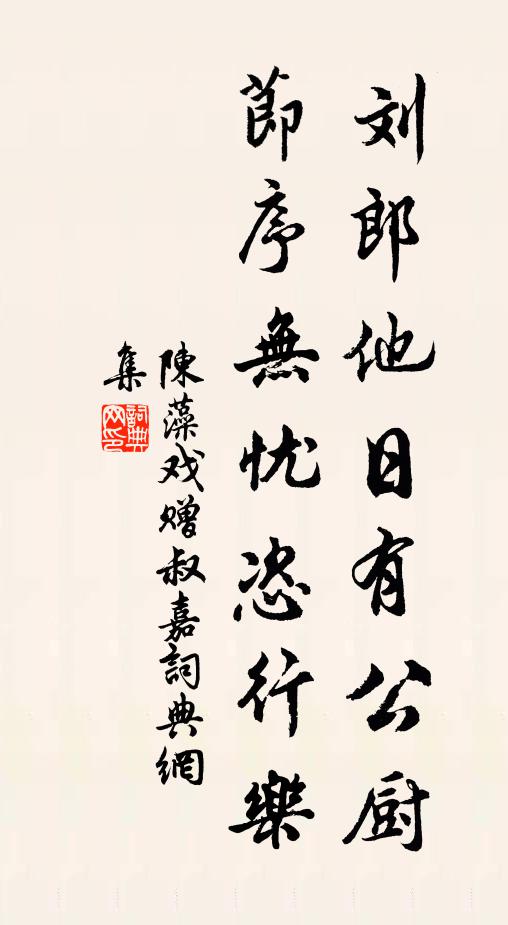 刘郎他日有公厨
節序無忧恣行樂
陳藻戏赠叔嘉詞典網
集
詞典
网印